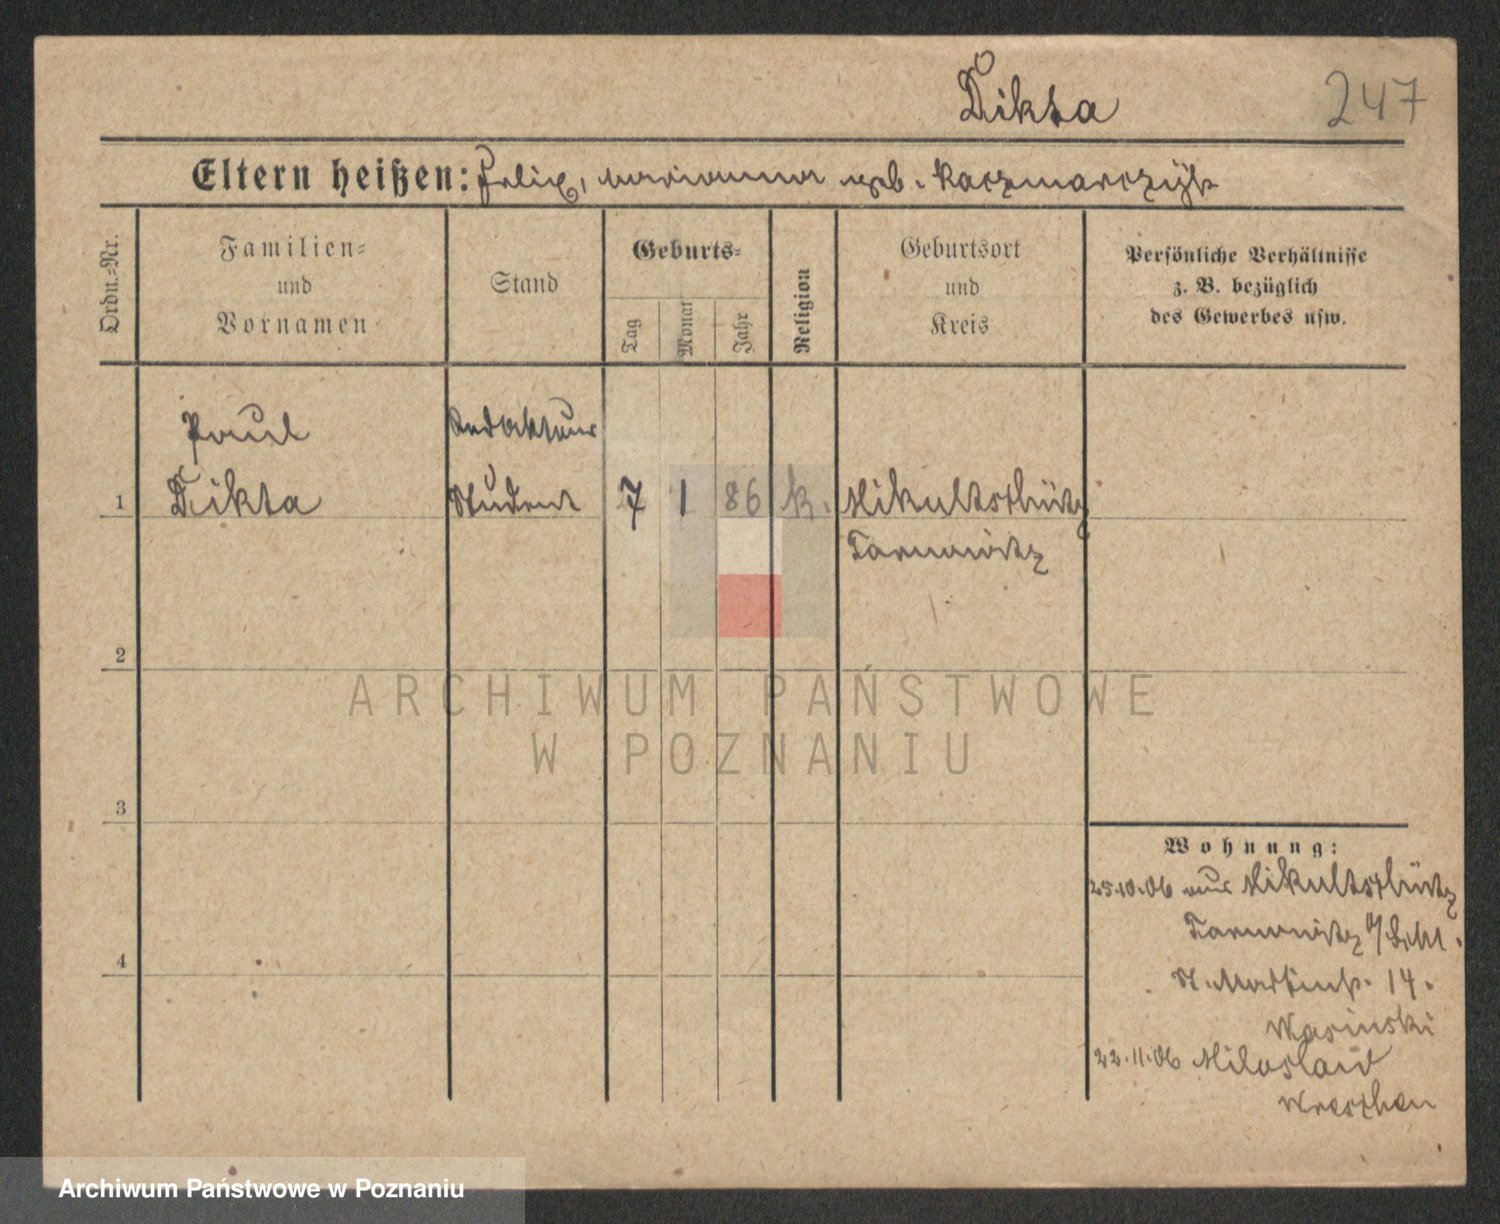 Dikta
247
Eltern heißen: Felix, Marianna geb. Kaczmarczyk
Ordn.-Nr.
Familien-
und
Vornamen
Stand
Geburts-
Tag
Monat
Jahr
Religion
Geburtsort
und
Kreis
Persönliche Verhältnisse
z. B. bezüglich
des Gewerbes usw.
Paul
Redakteur
1
Dikta
Student
7
1
86
k.
Mikultschütz
Tarnowitz
2
ARCHIWUM PAŃSTWOWE
W POZNANIU
3
Wohnung:
25.10.06 aus Mikultschütz
Tarnowitz O/Schl.
4
St. Martinstr. 14.
22.11.06 Miloslaw
Wreschen
Archiwum Państwowe w Poznaniu